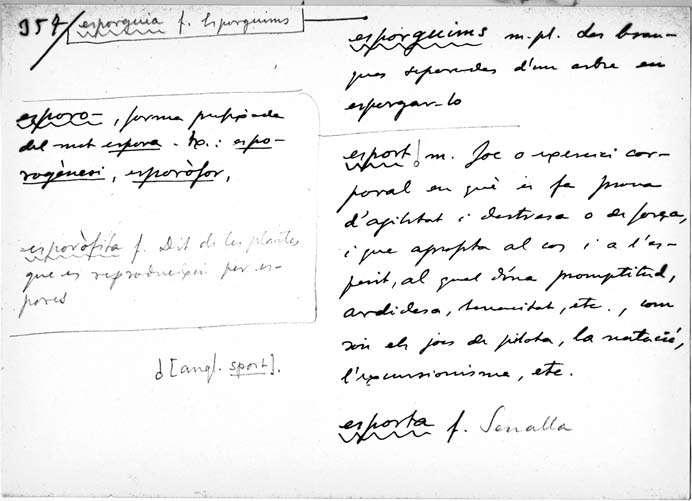 954/
esporguia f. Esporguims
esporo-, forma prefixada
del mot espora. Ex.: espo-
rogènesi, esporòfor,
esporòfita f. Dit de les plantes
que es reprodueixen per es-
pores
[angl. sport].
esporguims m.pl. Les bran-
ques separades d'un arbre en
esporgar-lo
esport m. Joc o exercici cor-
poral en què es fa prova
d'agilitat i destresa o de força,
i que aprofita al cos i a l'es-
perit, al qual dóna promptitud,
ardidesa, tenacitat, etc., com
són els jocs de pilota, la natació,
l'excursionisme, etc.
esporta f. Senalla